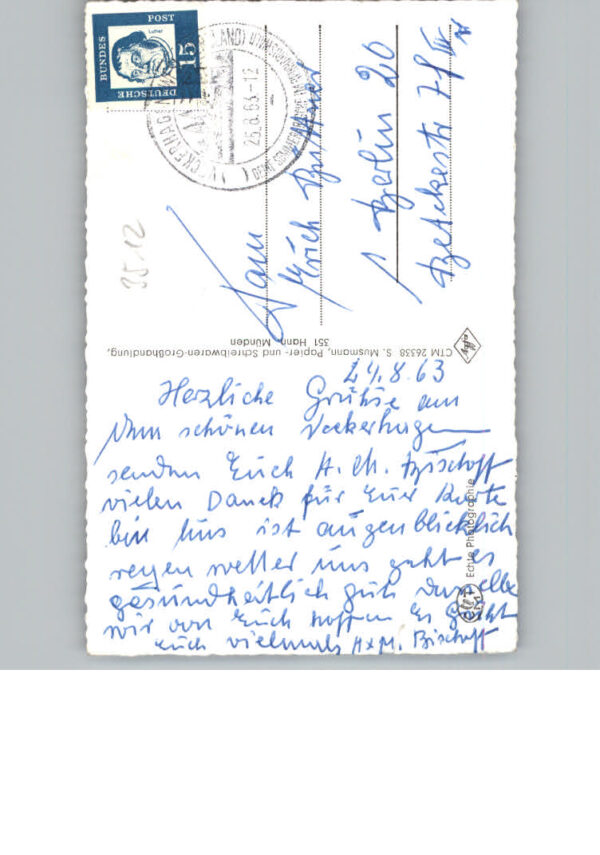 24.8.63
Herzliche Grüße aus
dem schönen Veckerhagen
senden Euch H. M. Bischoff
vielen Dank für Eure Karte
bei uns ist augenblicklich
regen wetter uns geht es
gesundheitlich gut dasselbe
wir von Euch hoffen Es Grüßt
Euch vielmals H+M. Bischoff
Fam
Erich
1 Berlin 20
DEUTSCHE
BUNDES
POST
15
Luther
25.8.63-12
35.12
CTM 26338 S. Musmann, Papier- und Schreibwaren-Großhandlung,
351 Hann. Münden
Agfa
Echte Photographie